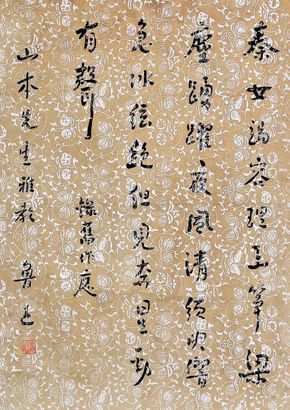 秦女端容理玉筝梁
塵踊躍夜風清須臾響
急冰弦絶但見奔星勁
有聲
錄舊作應
山本先生雅教
魯迅